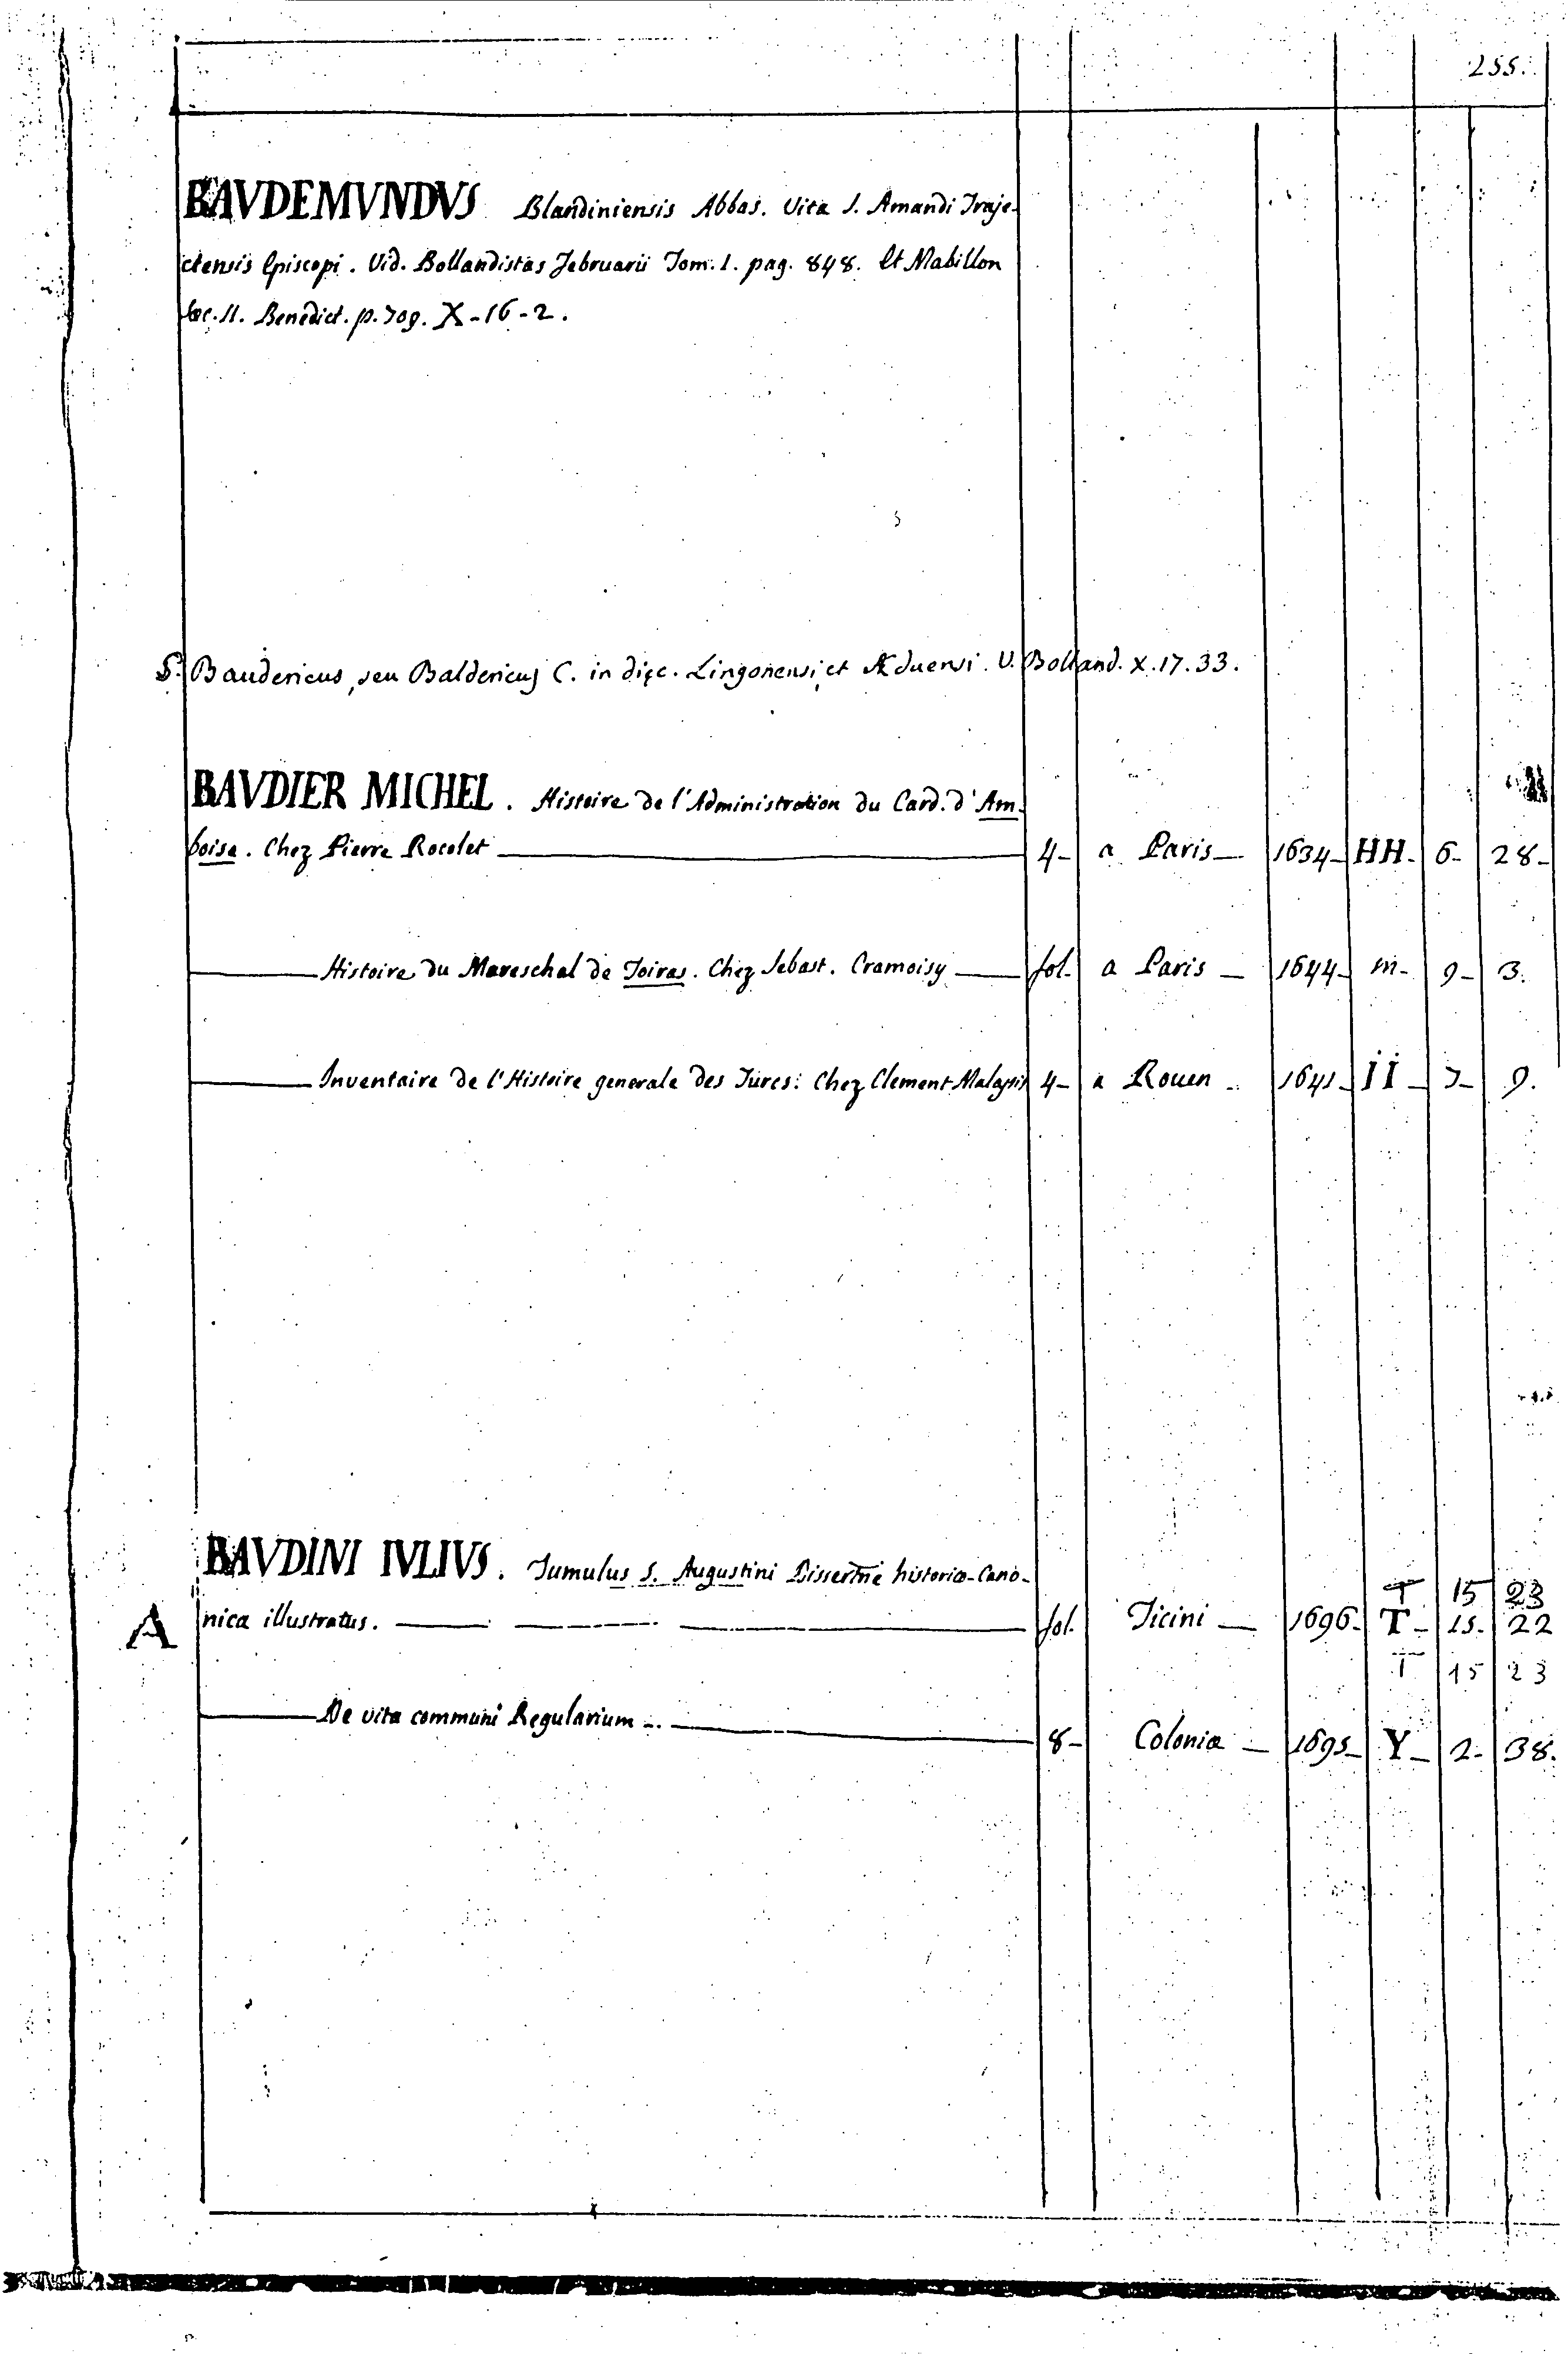 255.
BAVDEMVNDVS Blandiniensis Abbas. Vita S. Amandi Traje-
ctensis Episcopi. Vid. Bollandistas Februarii Tom. 1. pag. 848. Et Mabillon
Sæc. II. Benedict. p. 709. X-16-2.
S. Baudericus, seu Baldericus C. in diœc. Lingonensi, et Æduensi. V. Bolland. X.17.33.
BAVDIER MICHEL. Histoire de l'Administration du Card. d'Am-
boise. Chez Pierre Rocolet 4- a Paris 1634- HH- 6- 28-
Histoire du Mareschal de Toiras. Chez Sebast. Cramoisy fol. a Paris 1644- m- 9- 3.
Inventaire de l'Histoire generale des Turcs: Chez Clement Malassis 4- a Rouen 1641- II- 7- 9.
BAVDINI IVLIVS. Tumulus S. Augustini Dissertne historico-Cano-
T 15 23
A nica illustratus. fol. Ticini 1696- T- 15- 22
T 15 23
De vita communi Regularium 8- Coloniæ 1695- Y- 2- 38.